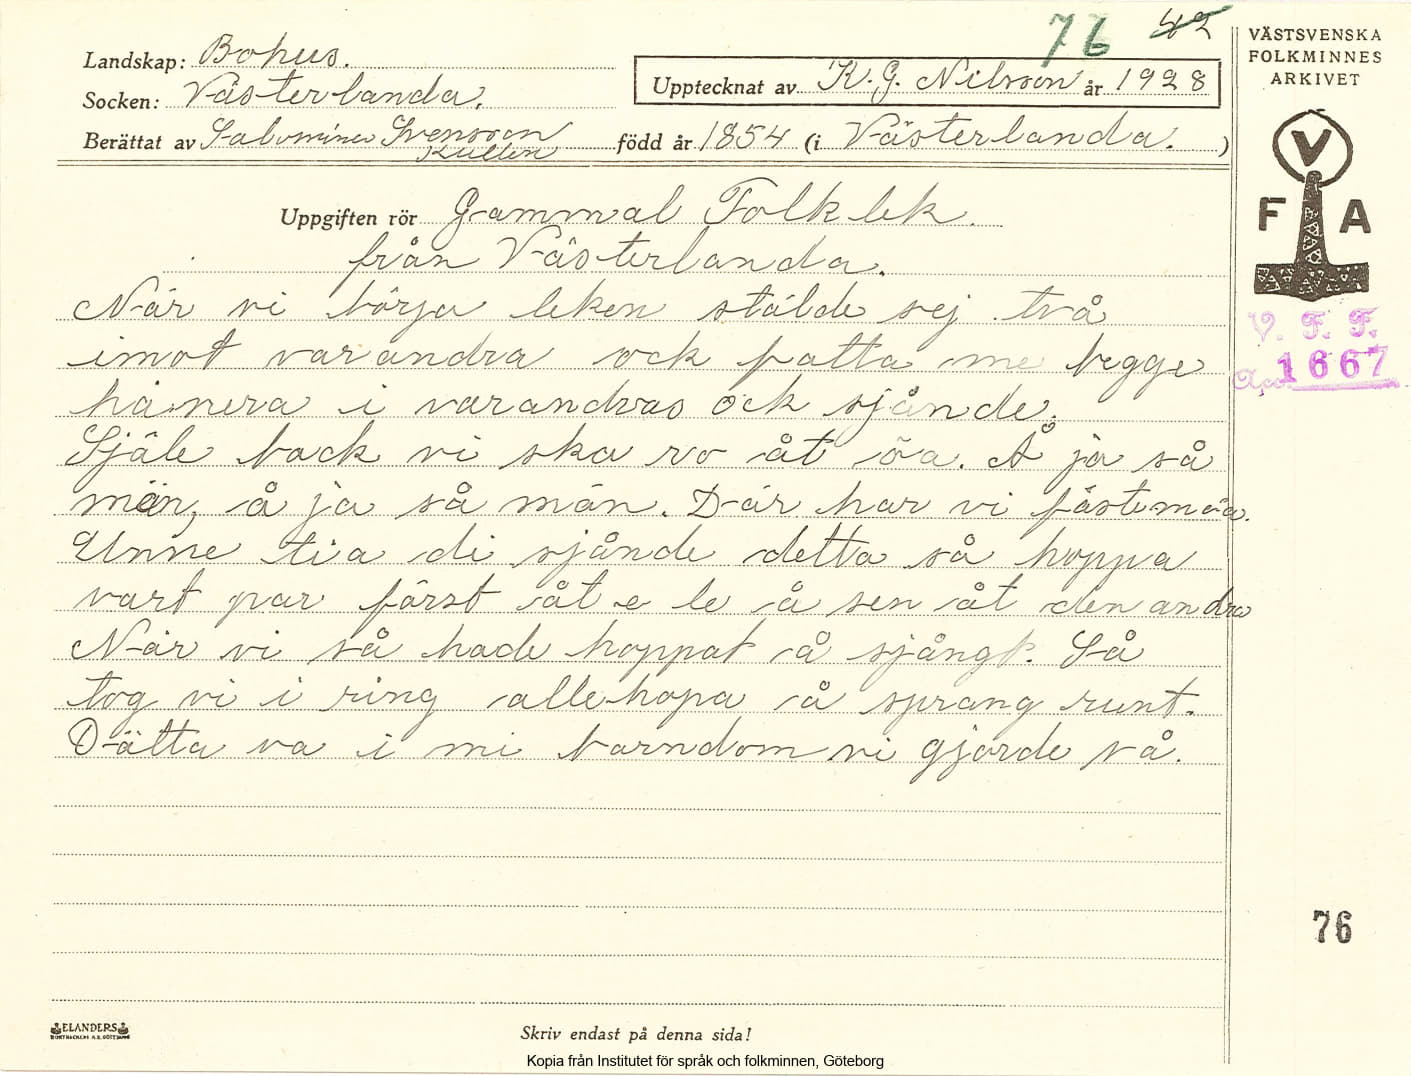 76 42
Landskap: Bohus.
Socken: Västerlanda.
Upptecknat av K. G. Nilsson år 1928
Berättat av Salomina Svensson Kullen född år 1854 (i Västerlanda. )
Uppgiften rör Gammal Folklek.
från Västerlanda.
När vi börja leken stälde sej två
imot varandra ock fatta me begge
hänera i varandras ock sjånde.
Själe back vi ska ro åt öa. Å ja så
män, å ja så män. Där har vi fästemöa.
Unne tia di sjånde detta så hoppa
vart par först åt e le å sen åt den andra
När vi så hade hoppat å sjångt. Så
tog vi i ring allehopa å sprang runt.
Dätta va i mi barndom vi gjorde så.
VÄSTSVENSKA
FOLKMINNES
ARKIVET
V
F A
V. F. F.
Acc. 1667
76
ELANDERS
Skriv endast på denna sida!
Kopia från Institutet för språk och folkminnen, Göteborg